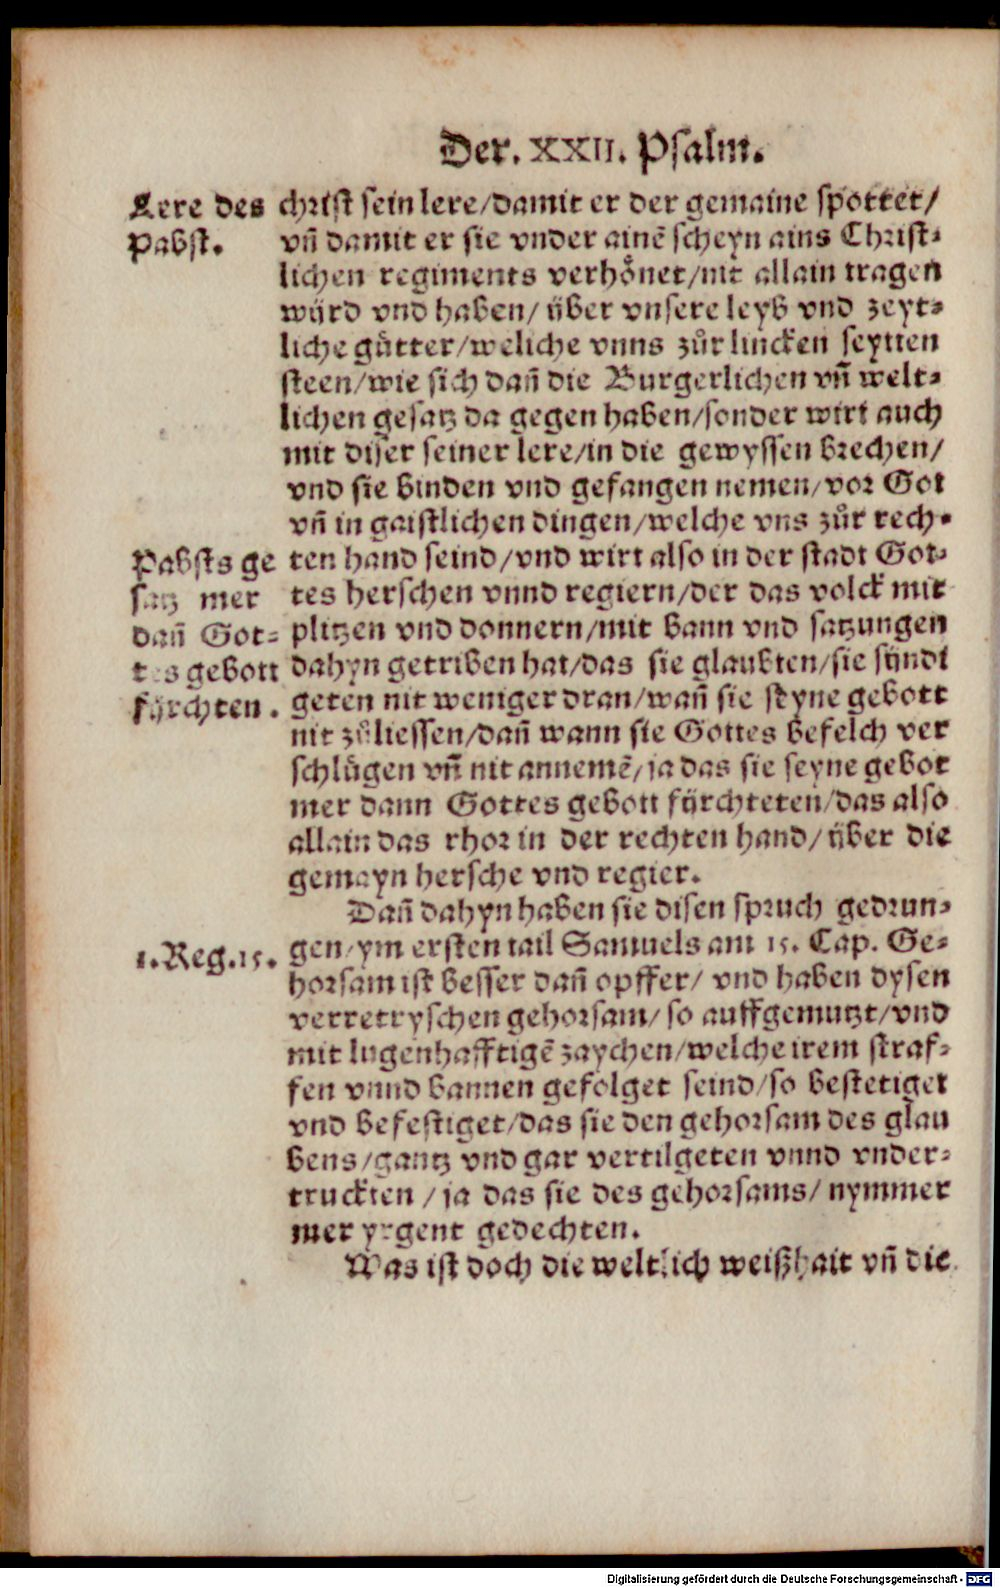 Der. XXII. Psalm.
Lere des
Pabst.
christ sein lere/damit er der gemaine spottet/
vñ damit er sie vnder ainē scheyn ains Christ-
lichen regiments verhoͤnet/nit allain tragen
würd vnd haben/ über vnsere leyb vnd zeyt-
liche guͤtter/weliche vnns zůr lincken seytten
steen/wie sich dañ die Burgerlichen vñ welt-
lichen gesatz da gegen haben/sonder wirt auch
mit diser seiner lere/in die gewyssen brechen/
vnd sie binden vnd gefangen nemen/vor Got
vñ in gaistlichen dingen/welche vns zůr rech-
Pabsts ge
satz mer
dañ Got-
tes gebott
fürchten.
ten hand seind/vnd wirt also in der stadt Got-
tes herschen vnnd regiern/der das volck mit
plitzen vnd donnern/mit bann vnd satzungen
dahyn getriben hat/das sie glaubten/sie sündi
geten nit weniger dran/wañ sie seyne gebott
nit zůliessen/dañ wann sie Gottes befelch ver
schluͤgen vñ nit annemē/ja das sie seyne gebot
mer dann Gottes gebott fürchteten/das also
allain das rhor in der rechten hand/über die
gemayn hersche vnd regier.
Dañ dahyn haben sie disen spruch gedrun-
1.Reg.15.
gen/ym ersten tail Samuels am 15. Cap. Ge-
horsam ist besser dañ opffer/ vnd haben dysen
verretryschen gehorsam/ so auffgemutzt/vnd
mit lugenhafftigē zaychen/welche irem straf-
fen vnnd bannen gefolget seind/so bestetiget
vnd befestiget/das sie den gehorsam des glau
bens/gantz vnd gar vertilgeten vnnd vnder-
truckten/ja das sie des gehorsams/nymmer
mer yrgent gedechten.
Was ist doch die weltlich weißhait vñ die
Digitalisierung gefördert durch die Deutsche Forschungsgemeinschaft - DFG